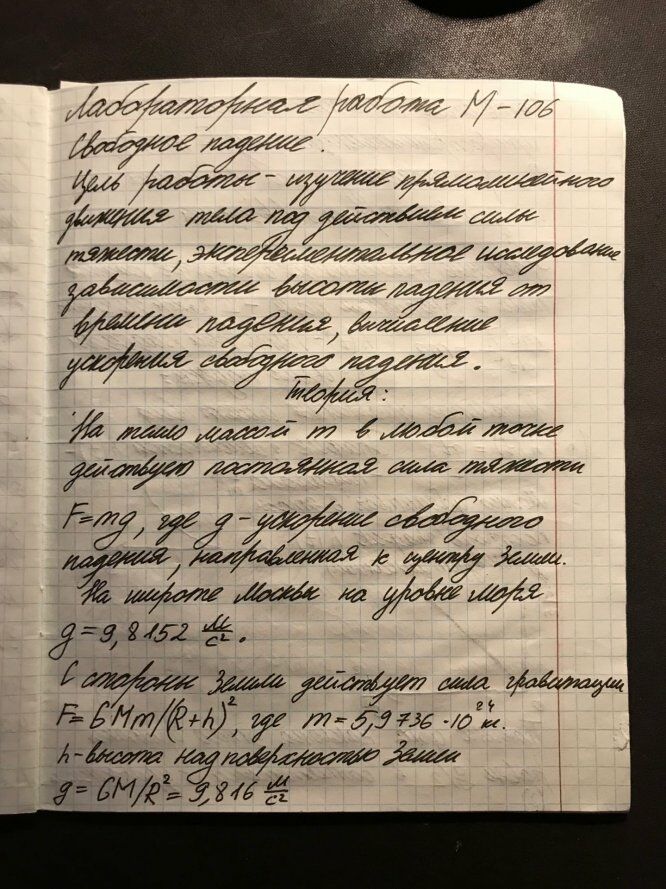 Лабораторная работа М-106
Свободное падение.
Цель работы - изучение прямолинейного
движения тела под действием силы
тяжести, экспериментальное исследование
зависимости высоты падения от
времени падения, вычисление
ускорения свободного падения.
Теория:
На тело массой m в любой точке
действует постоянная сила тяжести
F=mg, где g - ускорение свободного
падения, направленная к центру Земли.
На широте Москвы на уровне моря
g = 9,8152 м/с².
С стороны Земли действует сила гравитации
F=GMm/(R+h)², где m = 5,9736·10²⁴ кг.
h - высота над поверхностью Земли
g = GM/R² = 9,816 м/с²